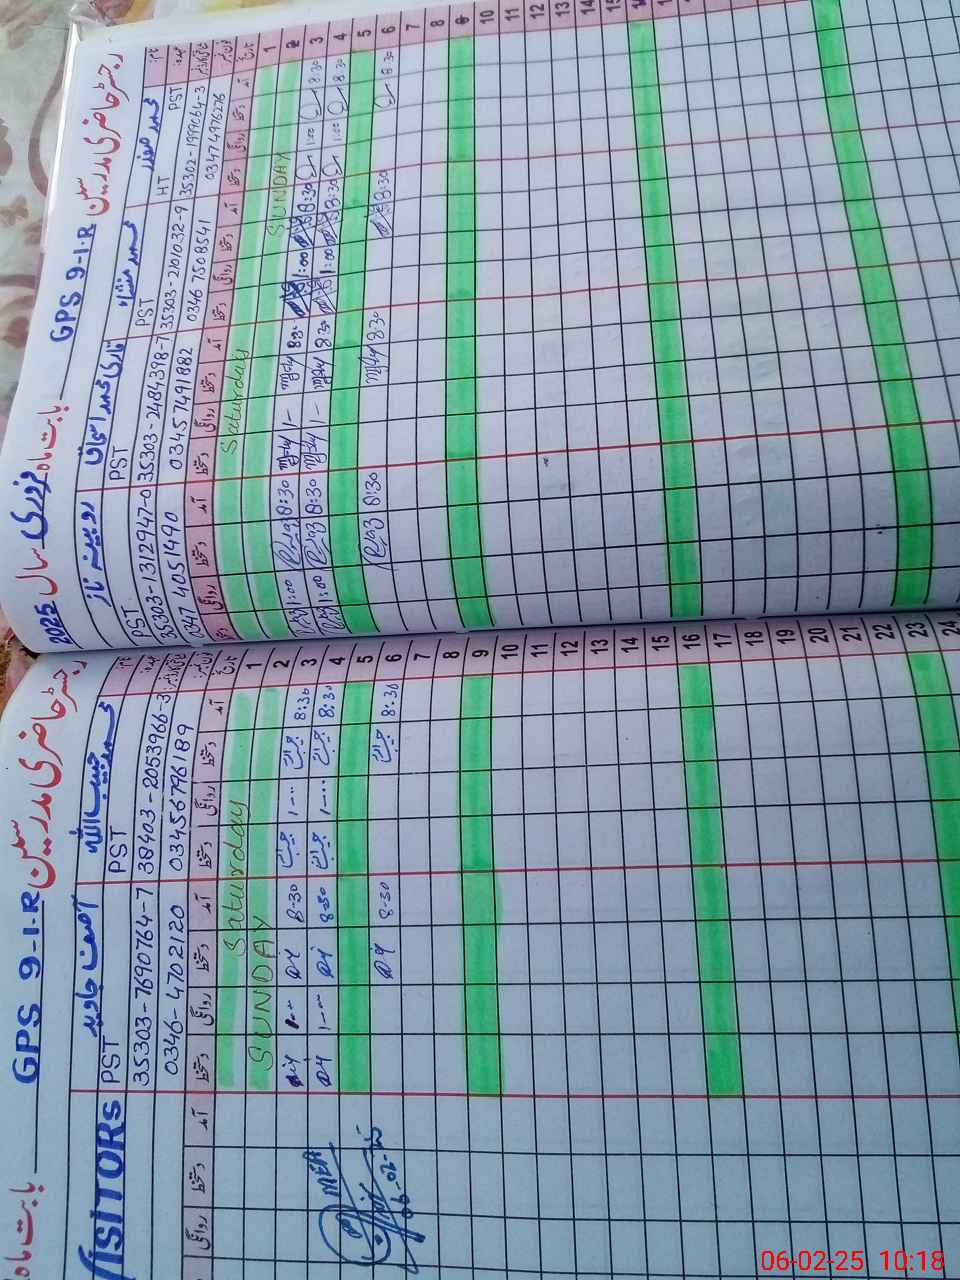 رجسٹر حاضری مدرسین
GPS 9-1-R
بابت ماہ فروری سال 2025
نام
عہدہ
محمد صفدر
HT
PST
35302-1999064-3
03474976276
PST
35303-2101032-9
0346 7508541
قاری محمد اسحاق
PST
35303-2484398-7
03457491882
روبینہ ناز
PST
35303-1312947-0
0347 4051490
تاریخ
آمد دستخط روانگی دستخط آمد دستخط روانگی دستخط آمد دستخط روانگی دستخط آمد دستخط روانگی دستخط
1 Saturday
2 SUNDAY
3 8:30 1:00 8:30 1:00 8:30 1- 8:30 1:00
4 8:30 1:00 8:30 1:00 8:30 1- 8:30 1:00
5
6 8:30 8:30 8:30 8:30
7
8
9
10
11
12
13
14
15
رجسٹر حاضری مدرسین
GPS 9-1-R
بابت ماہ
نام
عہدہ
محمد حبیب اللہ
PST
38403-2053966-3
03456796189
آصف جاوید
PST
35303-7690764-7
0346-4702120
VISITORS
تاریخ
آمد دستخط روانگی دستخط آمد دستخط روانگی دستخط آمد دستخط روانگی
1 Saturday
2 SUNDAY
3 8:30 1-.. 8-30 1-..
4 8:30 1-.. 8-30 1-.. MEA
5
6 8:30 8-30 06-02-25
7
8
9
10
11
12
13
14
15
16
17
18
19
20
21
22
23
24
06-02-25 10:18